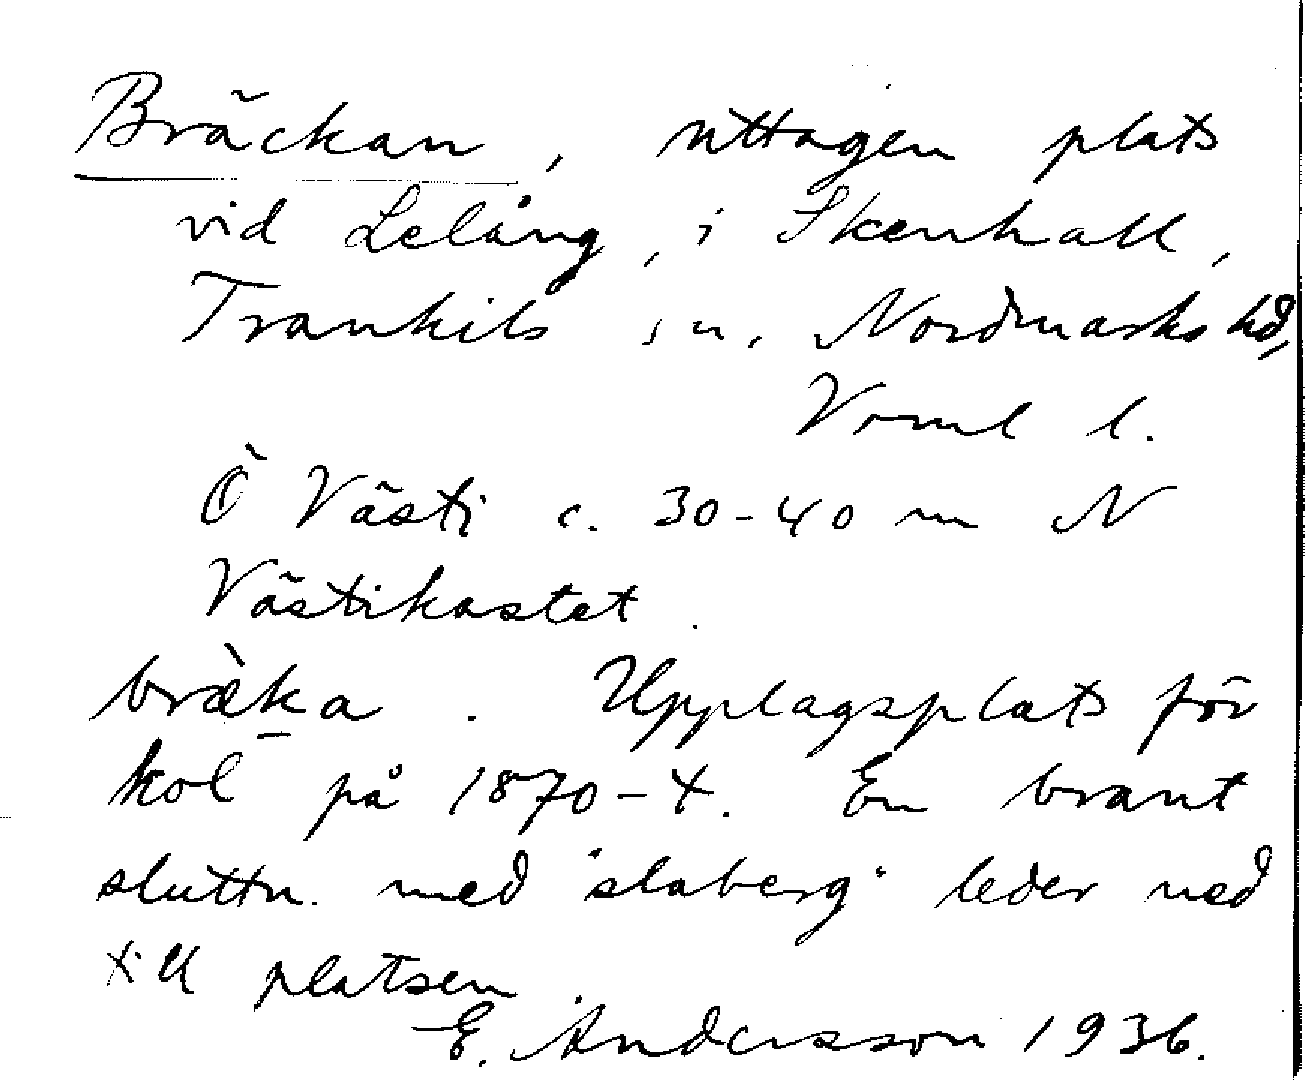 Bräckan, uttagen plats
vid Lelång, i Skenhall,
Trankils sn, Nordmarks hd,
Vrml l.
Ö Västi c. 30-40 m N
Västikastet.
bræ̀ka. Upplagsplats för
kol på 1870-t. En brant
sluttn. med "slaberg" leder ned
till platsen
E. Andersson 1936.